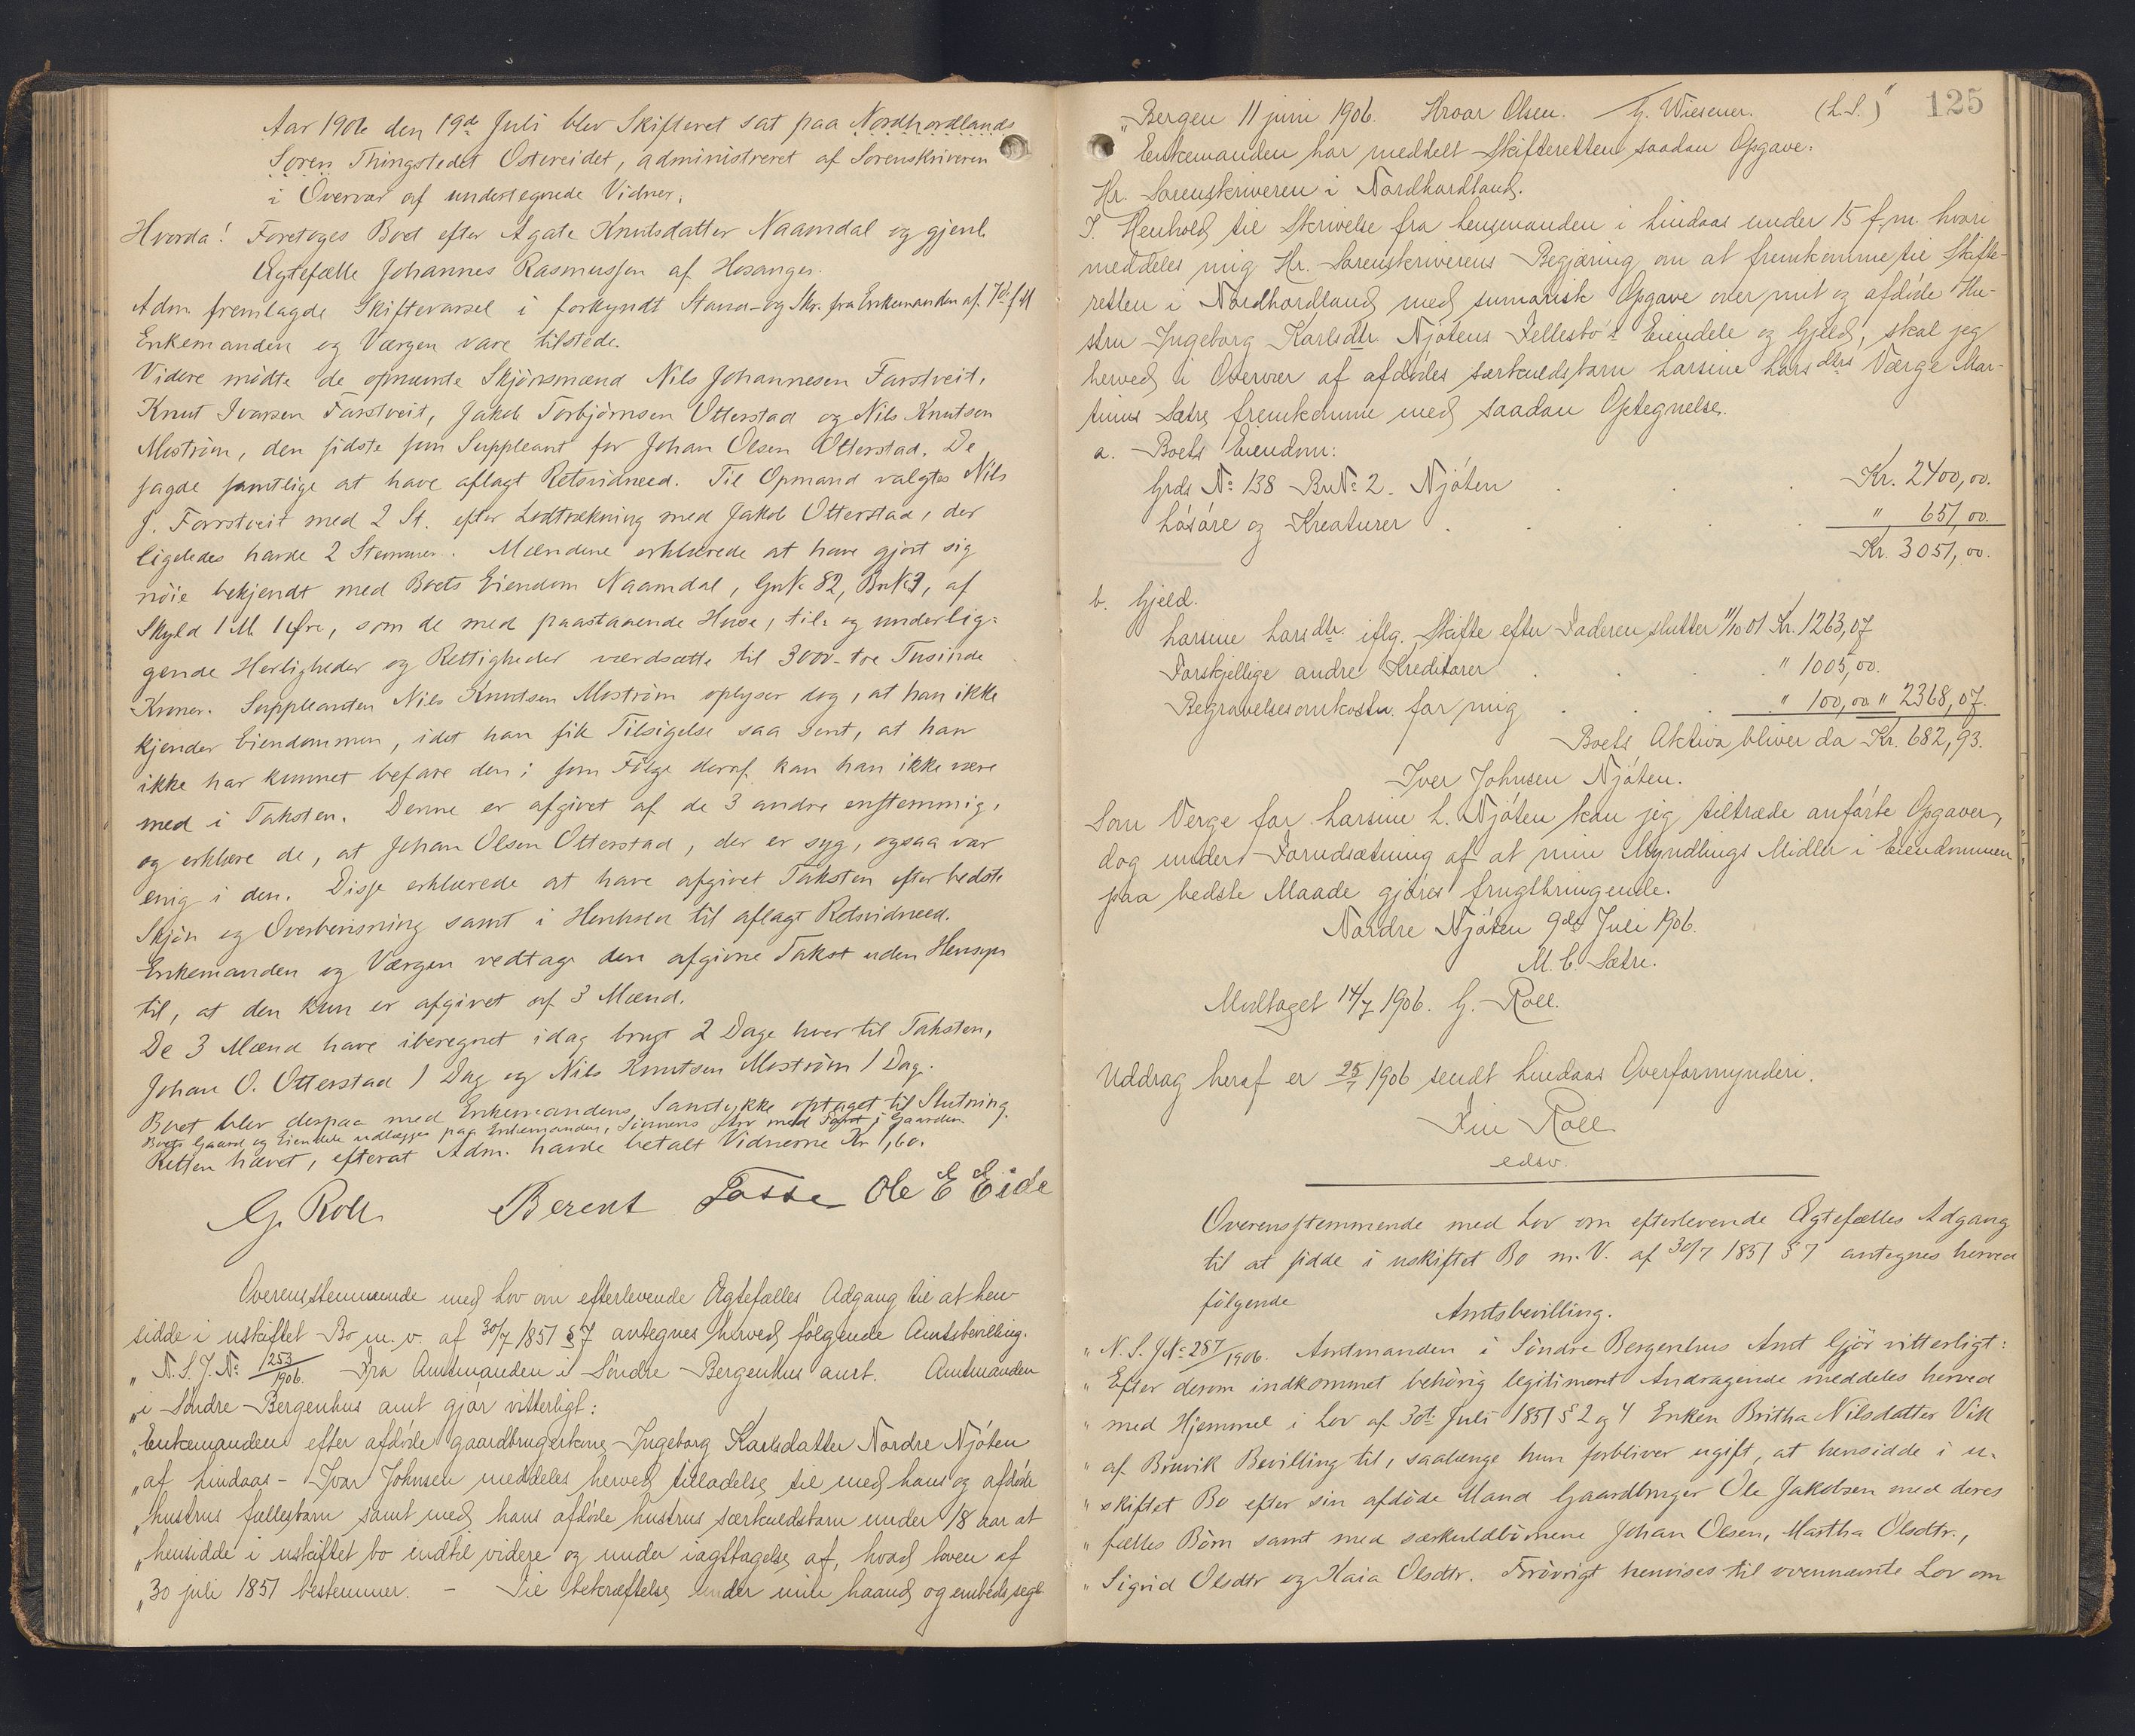 Aar 1906 den 19de Juli blev Skifteret sat paa Nordhordlands
Soren. Thingstedet Ostereidet, administreret af Sorenskriveren
i Overvær af undertegnede Vidner.
Hvorda! Foretoges Boet efter Agate Knutsdatter Naamdal og gjenl.
Ægtefælle Johannes Rasmussen af Hosanger.
Adm. fremlagde Skiftevarsel i forkyndt Stand og Skr. fra Enkemanden af 7de f M
Enkemanden og Værgen vare tilstede.
Videre mödte de opnævnte Skjönsmænd Nils Johannesen Farstveit,
Knut Ivarsen Farstveit, Jakob Torbjörnsen Otterstad og Nils Knutsen
Moström, den sidste som Suppleant for Johan Olsen Otterstad. De
sagde samtlige at have aflagt Retsvidneed. Til Opmand valgtes Nils
J. Farstveit med 2 St. efter Lodtrækning med Jakob Otterstad, der
ligeledes havde 2 Stemmer. Mændene erklærede at have gjort sig
nöie bekjendt med Boets Eiendom Naamdal, GnN: 82, BnN: 3, af
Skyld 1 M. 1 Øre, som de med paastaaende Huse, til- og underlig-
gende Herligheder og Rettigheder værdsatte til 3000 - tre Tusinde
Kroner. Suppleanten Nils Knutsen Moström oplyser dog, at han ikke
kjender Eiendommen, idet han fik Tilsigelse saa sent, at han
ikke har kunnet befare den; som Fölge deraf kan han ikke være
med i Taksten. Denne er afgivet af de 3 andre enstemmig,
og erklære de, at Johan Olsen Otterstad, der er syg, ogsaa var
enig i den. Disse erklærede at have afgivet Taksten efter bedste
Skjön og Overbevisning samt i Henhold til aflagt Retsvidneed.
Enkemanden og Værgen vedtage den afgivne Takst uden Hensyn
til, at den kun er afgivet af 3 Mænd.
De 3 Mænd have iberegnet idag brugt 2 Dage hver til Taksten,
Johan O. Otterstad 1 Dag og Nils Knutsen Moström 1 Dag.
Boet blev derpaa med Enkemandens Samtykke optaget til Slutning.
Boets Gaard og Eiendele udlægges paa Enkemanden, Sönnens Arv med Pant i Gaarden
Retten hævet, efterat Adm. havde betalt Vidnerne Kr 1,60.
G. Roll Berent Tosse Ole E Eide
Overensstemmende med Lov om efterlevende Ægtefælles Adgang til at hen-
sidde i uskiftet Bo m. v. af 30/7 1851 § 7 antegnes herved følgende Amtsbevilling.
„ N. S. J. No: 253/1906. Fra Amtmanden i Søndre Bergenhus amt. Amtmanden
„i Søndre Bergenhus amt gjør vitterligt:
„Enkemanden efter afdøde gaardbrugerkone Ingeborg Karlsdatter Nordre Njøten
„af Lindaas - Ivar Johnsen meddeles herved tilladelse til med hans og afdøde
„hustrus fællesbarn samt med hans afdøde hustrus særkuldsbarn under 18 aar at
„hensidde i uskiftet bo indtil videre og under iagttagelse af, hvad loven af
„30 juli 1851 bestemmer. - Til bekræftelse under min haand og embedssegl
125
„Bergen 11 juni 1906. Hroar Olsen. G. Wiesener. (L. S.)"
Enkemanden har meddelt Skifteretten saadan Opgave:
Hr. Sorenskriveren i Nordhordland.
I Henhold til Skrivelse fra Lensmanden i Lindaas under 15 f. m. hvori
meddeles mig Hr. Sorenskriverens Begjæring om at fremkomme til Skifte-
retten i Nordhordland med sumarisk Opgave over mit og afdøde Hu-
stru Ingeborg Karlsdtr. Njøtens Fellesbo's Eiendele og Gjeld, skal jeg
herved i Overvær af afdødes særkuldsbarn Larsine Larsdtrs Værge Mar-
tinus Sætre fremkomme med saadan Optegnelse.
a. Boets Eiendom:
Grds No: 138 BrNo: 2. Njøten . . . Kr. 2400,00.
Løsøre og Kreaturer . . . . . " 651,00.
Kr. 3051,00.
b. Gjeld.
Larsine Larsdtr. iflg. Skifte efter Faderen slutter 11/10 01 Kr. 1263,07
Forskjellige andre Kreditorer . . . . " 1005,00.
Begravelsesomkostn. for mig . . . " 100,00 " 2368,07.
Boets Aktiva bliver da Kr. 682,93.
Iver Johnsen Njøten.
Som Verge for Larsine L. Njøten kan jeg tiltræde anførte Opgaver,
dog under Forudsætning af at min Myndlings Midler i Eiendommen
paa bedste Maade gjøres frugtbringende.
Nordre Njøten 9de Juli 1906.
M. C. Sætre.
Modtaget 14/7 1906. G. Roll.
Uddrag heraf er 25/7 1906 sendt Lindaas Overformynderi.
Roll
edsv.
Overensstemmende med Lov om efterlevende Ægtefælles Adgang
til at sidde i uskiftet Bo m. V. af 30/7 1851 § 7 antegnes herved
følgende Amtsbevilling.
„ N. S. J No: 287/1906. Amtmanden i Söndre Bergenhus Amt Gjör vitterligt:
„ Efter derom indkommet behörig legitimeret Andragende meddeles herved
„ med Hjemmel i Lov af 30te Juli 1851 § 2 og 4 Enken Britha Nilsdatter Vik
„ af Bruvik Bevilling til, saalænge hun forbliver ugift, at hensidde i u-
„ skiftet Bo efter sin afdöde Mand Gaardbruger Ole Jakobsen med deres
„ fælles Börn samt med særkuldbörnene Johan Olsen, Martha Olsdtr.,
„ Sigrid Olsdtr og Kaia Olsdtr. Forövrigt henvises til ovennævnte Lov om